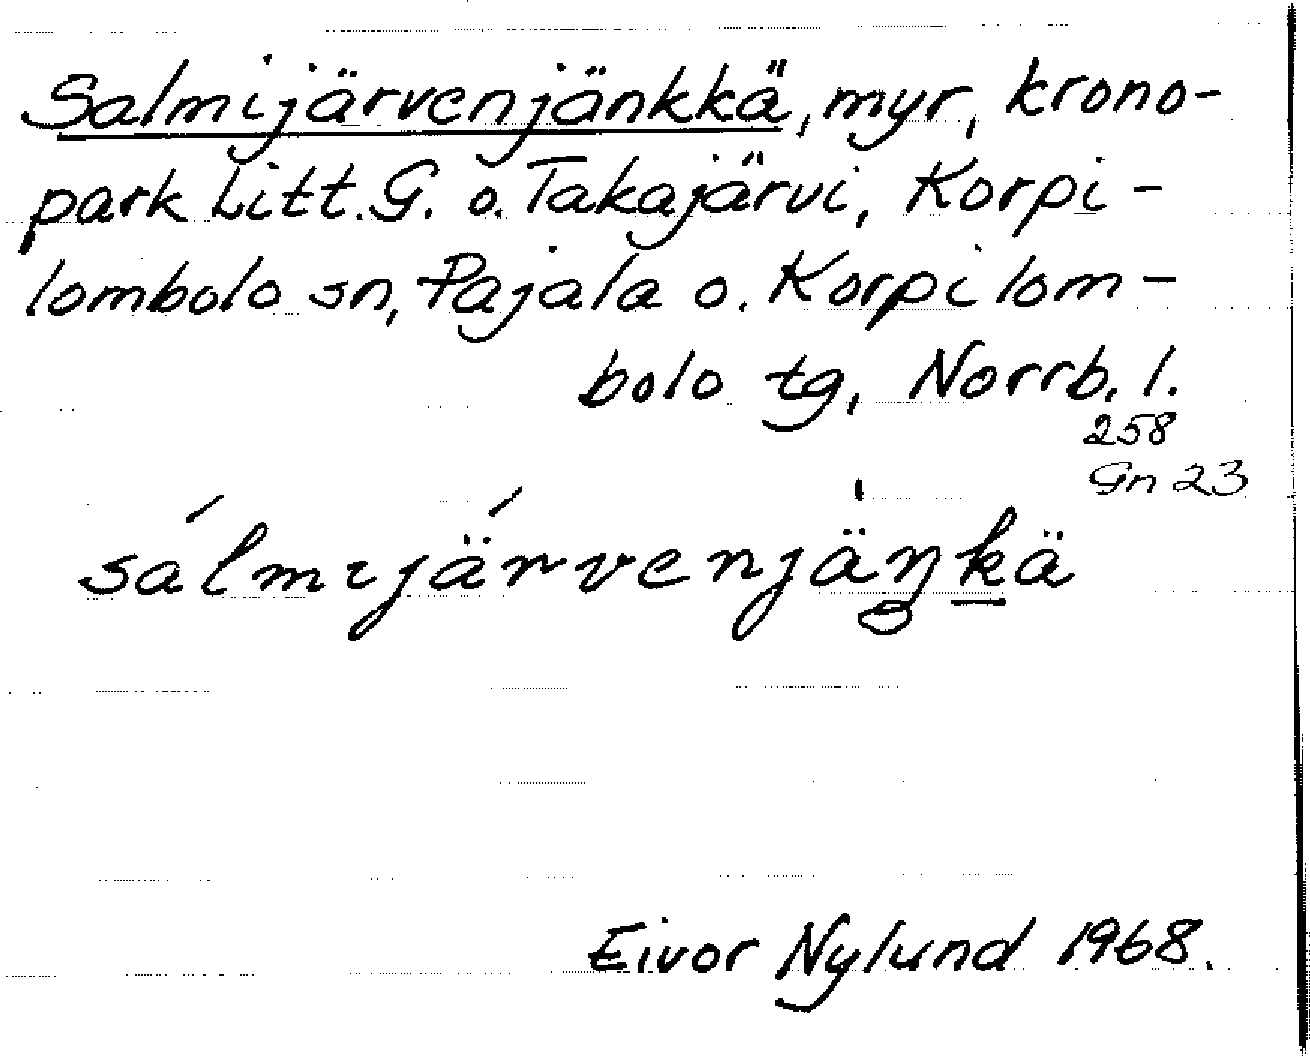 Salmijärvenjänkkä, myr, krono-
park Litt. G. o. Takajärvi, Korpi-
lombolo sn, Pajala o. Korpilom-
bolo tg, Norrb. l.
258
Gn 23
sálmıjä́rvenjäŋkä
Eivor Nylund 1968.